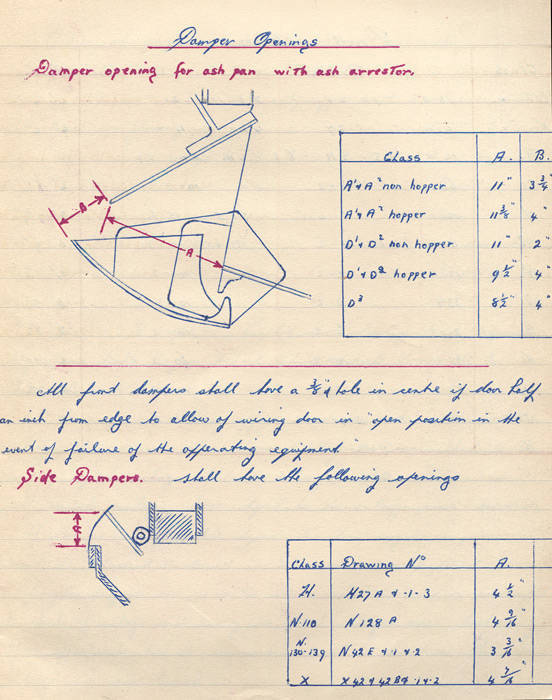 Damper Openings
Damper opening for ash pan with ash arrestor.
B
A
Class A. B.
A'& A² non hopper 11" 3 3/4"
A'& A² hopper 11 3/8" 4"
D'& D² non hopper 11" 2"
D'& D² hopper 9 1/2" 4"
D³ 8 1/2" 4"
All front dampers shall have a 3/8"φ hole in centre if door half
an inch from edge to allow of wiring door in "open position in the
event of failure of the opperating equipment."
Side Dampers. shall have the following openings
Class Drawing Nº A.
H. H27A & -1-3 4 1/2"
N.110 N128 A 4 9/16"
N.
130-139 N42E & 1 & 2 3 3/16"
X X42 & 42B & 1 & 2 4 7/16"